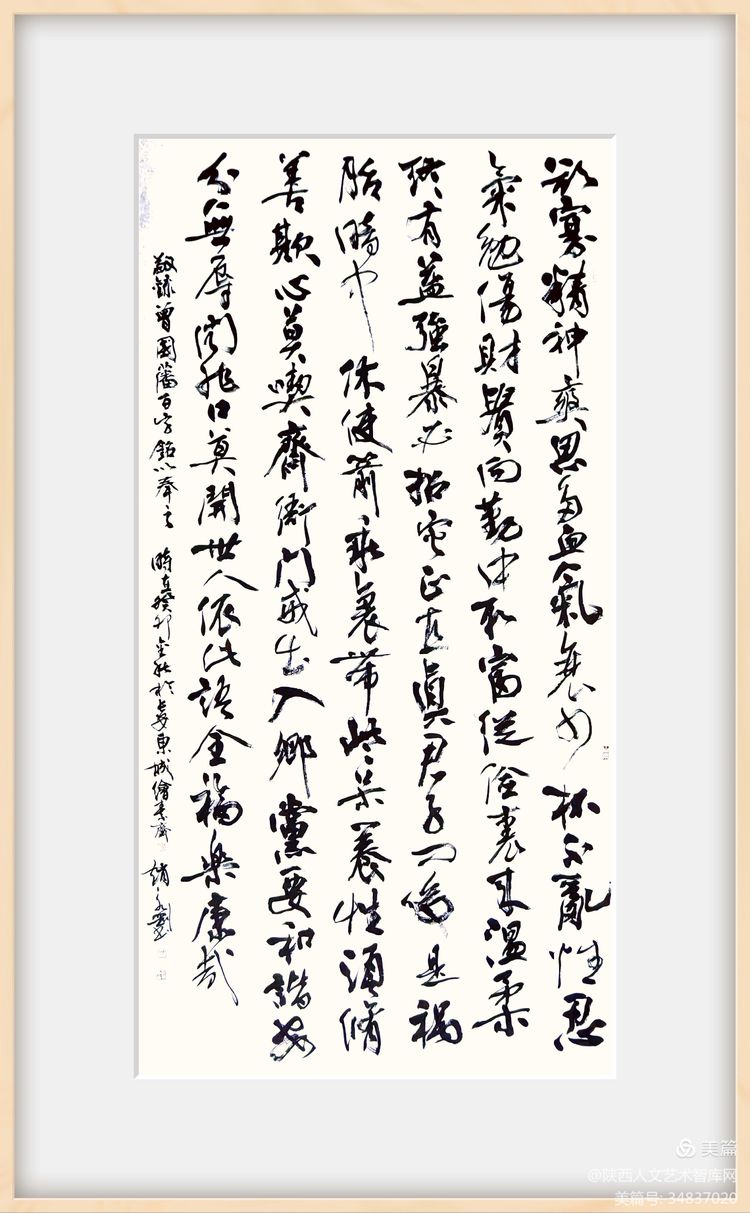 欲寡精神爽思多血氣衰少杯不亂性忍
氣勉傷財貴向勤中取富從儉裏來溫柔
終有益強暴必招灾正直真君子刁唆是禍
胎暗中休使箭乖裏帶些呆養性須修
善欺心莫喫齋衙門戒出入鄉黨要和諧安
分無辱閑非口莫開世人依此語全福樂康哉
敬錄曾國藩百字銘以奉之 時在癸卯金秋於長安東城繪素齋 趙永
美篇
@陕西人文艺术智库网
美篇号: 34837020